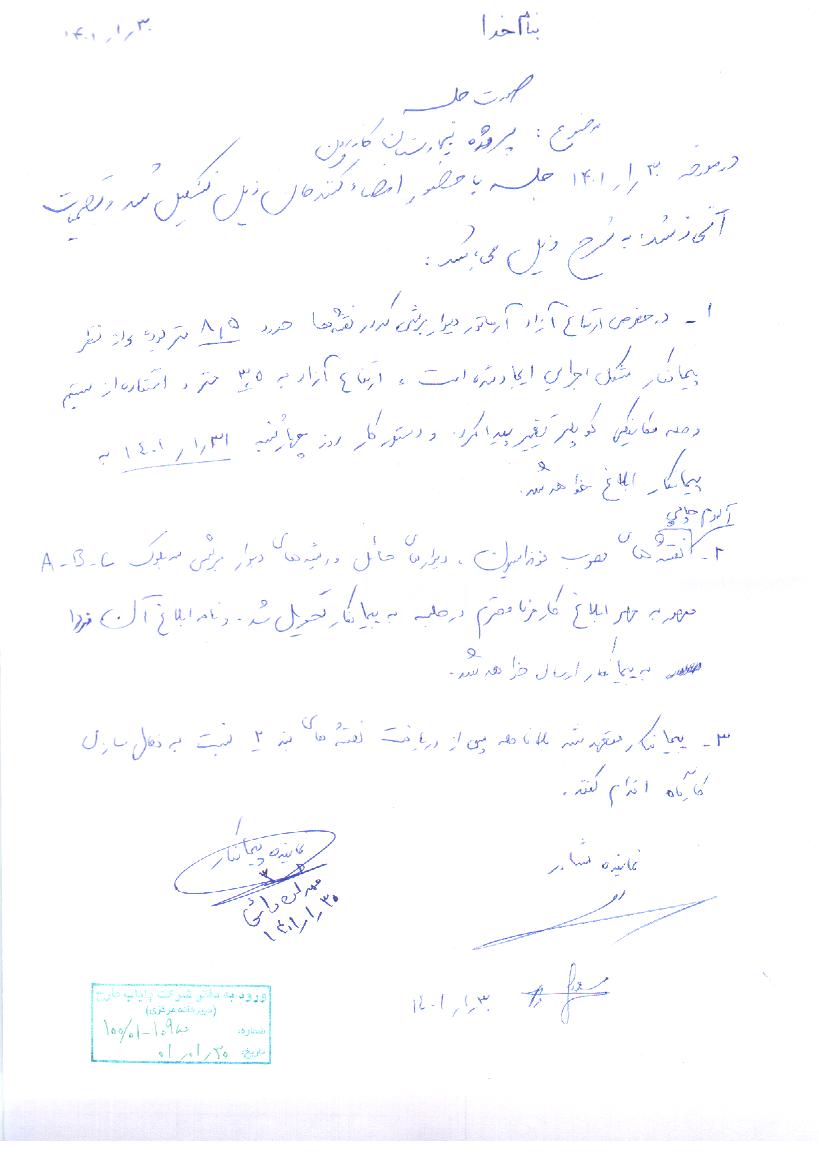 بنام خدا
۱۴۰۱/۱/۳۰
صورت جلسه
موضوع: پروژه بیمارستان کازرون
در مورخه ۱۴۰۱/۱/۳۰ جلسه با حضور امضاء کنندگان ذیل تشکیل شد و تصمیمات
اتخاذ شده به شرح ذیل می باشد:
۱- در خصوص ارتفاع آزاد آرماتور دیوار برشی که در نقشه ها حدود ۸٫۵ متر بوده و از نظر
پیمانکار مشکل اجرایی ایجاد شده است، ارتفاع آزاد به ۳٫۵ متر و استفاده از سیستم
وصله مکانیکی کوپلر تغییر پیدا کرد. و دستور کار روز چهارشنبه ۱۴۰۱/۱/۳۱ به
پیمانکار ابلاغ خواهد شد.
آلبوم چاپی
۲- نقشه های مصوب فونداسیون، دیوارهای حائل و ریشه های دیوار برشی سه بلوک A-B-C
ممهور به مهر ابلاغ کارفرما محترم در جلسه به پیمانکار تحویل شد. و نامه ابلاغ آن فردا
به پیمانکار ارسال خواهد شد.
۳- پیمانکار متعهد شد بلافاصله پس از دریافت نقشه های بند ۲ نسبت به فعال سازی
کارگاه اقدام کند.
نماینده مشاور
نماینده پیمانکار
۱۴۰۱/۱/۳۰
۱۴۰۱/۱/۳۰
ورود به دفتر شرکت پایاب طرح
(دبیرخانه مرکزی)
شماره:
تاریخ: ۰۱/۰۱/۳۰